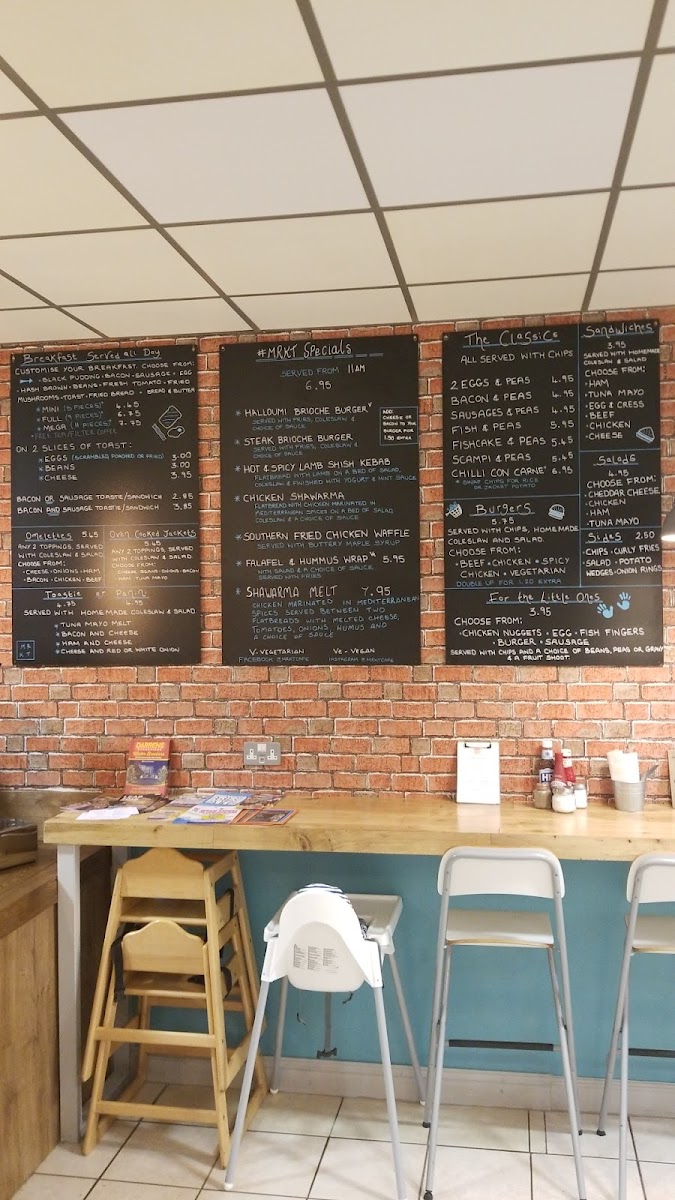 Breakfast Served all Day
CUSTOMISE YOUR BREAKFAST. CHOOSE FROM:
BLACK PUDDING · BACON · SAUSAGE · EGG
· HASH BROWN · BEANS · FRESH TOMATO · FRIED
MUSHROOMS · TOAST · FRIED BREAD · BREAD & BUTTER
* MINI (5 PIECES) 4.45
* FULL (9 PIECES) 6.75
* MEGA (11 PIECES) 7.75
* FREE TEA/FILTER COFFEE
ON 2 SLICES OF TOAST:
* EGGS (SCRAMBLED POACHED OR FRIED) 3.00
* BEANS 3.00
* CHEESE 3.95
BACON OR SAUSAGE TOASTIE/SANDWICH 2.85
BACON AND SAUSAGE TOASTIE/SANDWICH 3.85
Omelettes 5.45
ANY 2 TOPPINGS, SERVED
WITH COLESLAW & SALAD
CHOOSE FROM:
· CHEESE · ONIONS · HAM
· BACON · CHICKEN · BEEF
Oven Cooked Jackets
5.45
ANY 2 TOPPINGS, SERVED
WITH COLESLAW & SALAD
CHOOSE FROM:
CHEESE · BEANS · ONIONS · BACON
HAM · TUNA MAYO
Toastie or Panini
4.75 4.95
SERVED WITH HOMEMADE COLESLAW & SALAD
* TUNA MAYO MELT
* BACON AND CHEESE
* HAM AND CHEESE
* CHEESE AND RED OR WHITE ONION
MR
KT
#MRKT Specials
SERVED FROM 11AM
6.95
* HALLOUMI BRIOCHE BURGER V
SERVED WITH FRIES, COLESLAW &
CHOICE OF SAUCE
ADD
CHEESE OR
BACON TO ANY
BURGER FOR
1.50 EXTRA
* STEAK BRIOCHE BURGER
SERVED WITH FRIES, COLESLAW &
CHOICE OF SAUCE
* HOT & SPICY LAMB SHISH KEBAB
FLATBREAD WITH LAMB ON A BED OF SALAD,
COLESLAW & FINISHED WITH YOGURT & MINT SAUCE
* CHICKEN SHAWARMA
FLATBREAD WITH CHICKEN MARINATED IN
MEDITERRANEAN SPICES ON A BED OF SALAD,
COLESLAW & A CHOICE OF SAUCE
* SOUTHERN FRIED CHICKEN WAFFLE
SERVED WITH BUTTERY MAPLE SYRUP
* FALAFEL & HUMMUS WRAP Ve 5.95
WITH SALAD & A CHOICE OF SAUCE.
SERVED WITH FRIES
* SHAWARMA MELT 7.95
CHICKEN MARINATED IN MEDITERRANEAN
SPICES SERVED BETWEEN TWO
FLATBREADS WITH MELTED CHEESE,
TOMATOES, ONIONS, HUMUS AND
A CHOICE OF SAUCE
V - VEGETARIAN Ve - VEGAN
FACEBOOK @MRKTCAFE INSTAGRAM @MRKTCAFE
The Classics
ALL SERVED WITH CHIPS
2 EGGS & PEAS 4.95
BACON & PEAS 4.95
SAUSAGES & PEAS 4.95
FISH & PEAS 5.95
FISHCAKE & PEAS 5.45
SCAMPI & PEAS 5.45
CHILLI CON CARNE* 6.95
* SWAP CHIPS FOR RICE
OR JACKET POTATO
Burgers
5.75
SERVED WITH CHIPS, HOMEMADE
COLESLAW AND SALAD.
CHOOSE FROM:
· BEEF · CHICKEN · SPICY
CHICKEN · VEGETARIAN
DOUBLE UP FOR 1.20 EXTRA
Sandwiches
3.95
SERVED WITH HOMEMADE
COLESLAW & SALAD
CHOOSE FROM:
· HAM
· TUNA MAYO
· EGG & CRESS
· BEEF
· CHICKEN
· CHEESE
Salads
4.95
CHOOSE FROM:
· CHEDDAR CHEESE
· CHICKEN
· HAM
· TUNA MAYO
Sides 2.50
· CHIPS · CURLY FRIES
· SALAD · POTATO
WEDGES · ONION RINGS
For the Little Ones
3.95
CHOOSE FROM:
· CHICKEN NUGGETS · EGG · FISH FINGERS
· BURGER · SAUSAGE
SERVED WITH CHIPS AND A CHOICE OF BEANS, PEAS OR GRAVY
& A FRUIT SHOOT.